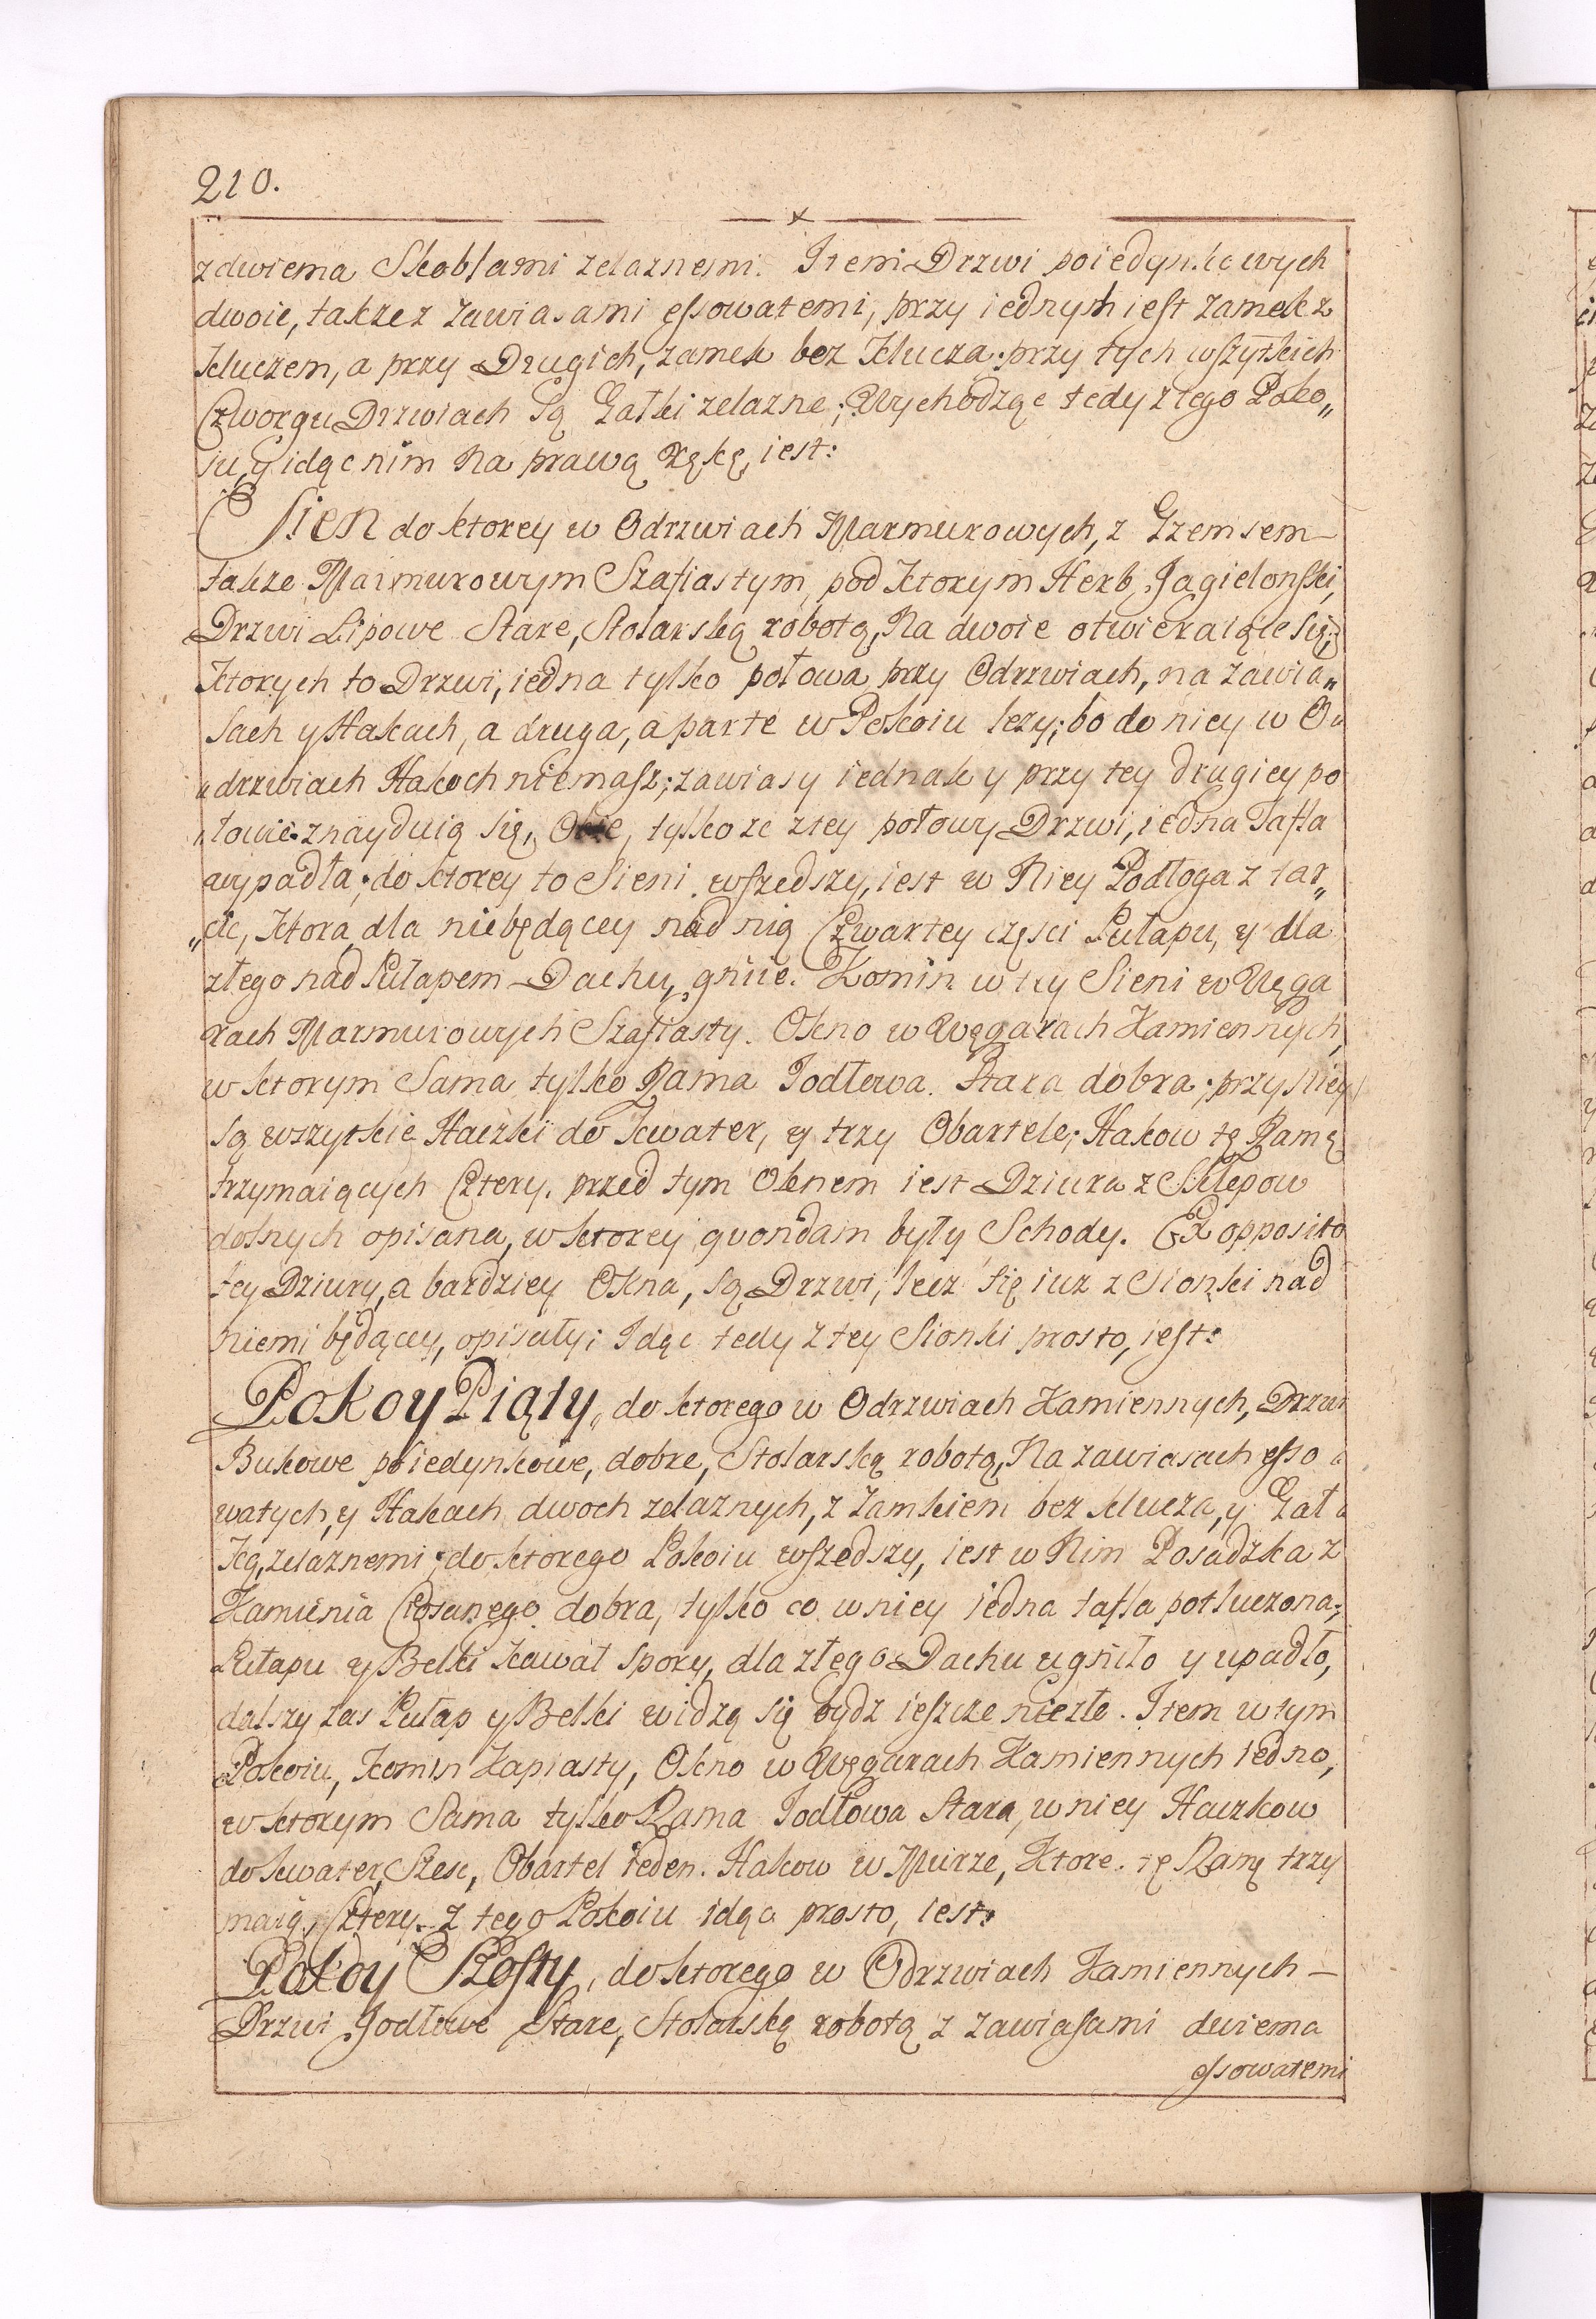 210.
z dwiema Skoblami zelaznemi. Item Drzwi poiedynkowych
dwoie, takze z zawiasami essowatemi, przy iednych iest zamek z
kluczem, a przy Drugich, zamek bez klucza. przy tych wszytkich
Czworgu Drzwiach są Gałki zelazne; Wychodząc tedy z tego Poko„
iu, y idąc nim na prawą rękę, iest:
Sien do ktorey w Odrzwiach Marmurowych, z Gzemsem
takze Marmurowym Szafiastym, pod ktorym Herb Jagielonski,
Drzwi Lipowe Stare, Stolarską robotą, na dwoie otwieraiące się;
ktorych to Drzwi, iedna tylko połowa przy Odrzwiach, na zawia„
sach y Hakach, a druga, aparte w Pokoiu lezy; bo do niey w O„
„drzwiach Hakoch niemasz; zawiasy iednak y przy tey drugiey po
„łowie znayduią się, Obie, tylko ze z tey połowy Drzwi, iedna Tafla
wypadła; do ktorey to Sieni wszedszy, iest w Niey Podłoga z tar„
„cic, ktora dla niebędącey nad nią Czwartey części Pułapu, y dla
złego nad Pułapem Dachu, gniie. Komin w tey Sieni w Węga
rach Marmurowych Szafiasty. Okno w Węgarach Kamiennych,
w ktorym Sama tylko Rama Jodłowa Stara dobra; przy Niey
są wszytkie Haczki do kwater, y trzy Obartele; Hakow tę Ramę
trzymaiących Cztery. przed tym Oknem iest Dziura z Sklepow
dolnych opisana, w ktorey quondam były Schody. Ex opposito
tey Dziury, a bardziey Okna, są Drzwi, lecz się iuz z Sionki nad
niemi będącey, opisały; Idąc tedy z tey Sionki prosto, iest:
Pokoy Piąty, do ktorego w Odrzwiach Kamiennych, Drzwi
Bukowe poiedynkowe, dobre, Stolarską robotą, Na zawiasach esso„
watych, y Hakach dwoch zelaznych, z Zamkiem bez klucza, y Gał„
ką, zelaznemi; do ktorego Pokoiu wszedszy, iest w Nim Posadzka z
Kamienia Ciosanego dobra, tylko co w niey iedna tafla potłuczona;
Pułapu y Belki kawał spory, dla złego Dachu ugniło y upadło,
dalszy zas Pułap y Belki widzą się bydz ieszcze niezłe. Item w tym
Pokoiu, Komin Kapiasty, Okno w Węgarach Kamiennych iedno,
w ktorym Sama tylko Rama Jodłowa Stara, w niey Haczkow
do kwater Szesc, Obartel ieden. Hakow w Murze, Ktore tę Ramę trzy
maią, Cztery. Z tego Pokoiu idąc prosto, iest:
Pokoy Szosty, do ktorego w Odrzwiach Kamiennych
Drzwi Jodłowe Stare, Stolarską robotą z zawiasami dwiema
essowatemi